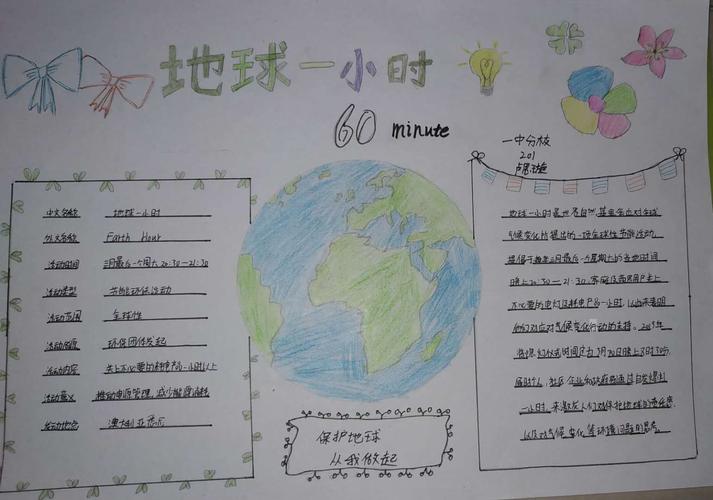 地球一小时
60 minute
一中分校
201
中文名称 地球一小时
外文名称 Earth Hour
活动时间 三月最后一个周六 20:30—21:30
活动类型 节能环保活动
活动范围 全球性
环保团体发起
活动内容 关上不必要的耗电产品一小时以上
活动意义 推动电源管理,减少能源消耗
澳大利亚悉尼
地球一小时是世界自然基金会应对全球
气候变化所提出的一项全球性节能活动,
提倡于每年三月最后一个星期六的当地时间
晚上20:30—21:30,家庭及商界用户关上
不必要的电灯及耗电产品一小时,以此来表明
他们对应对气候变化行动的支持。
届时个人、社区、企业和政府将通过自发熄灯
一小时,来激发人们对保护地球的责任感,
以及对气候变化等环境问题的思考。
保护地球
从我做起